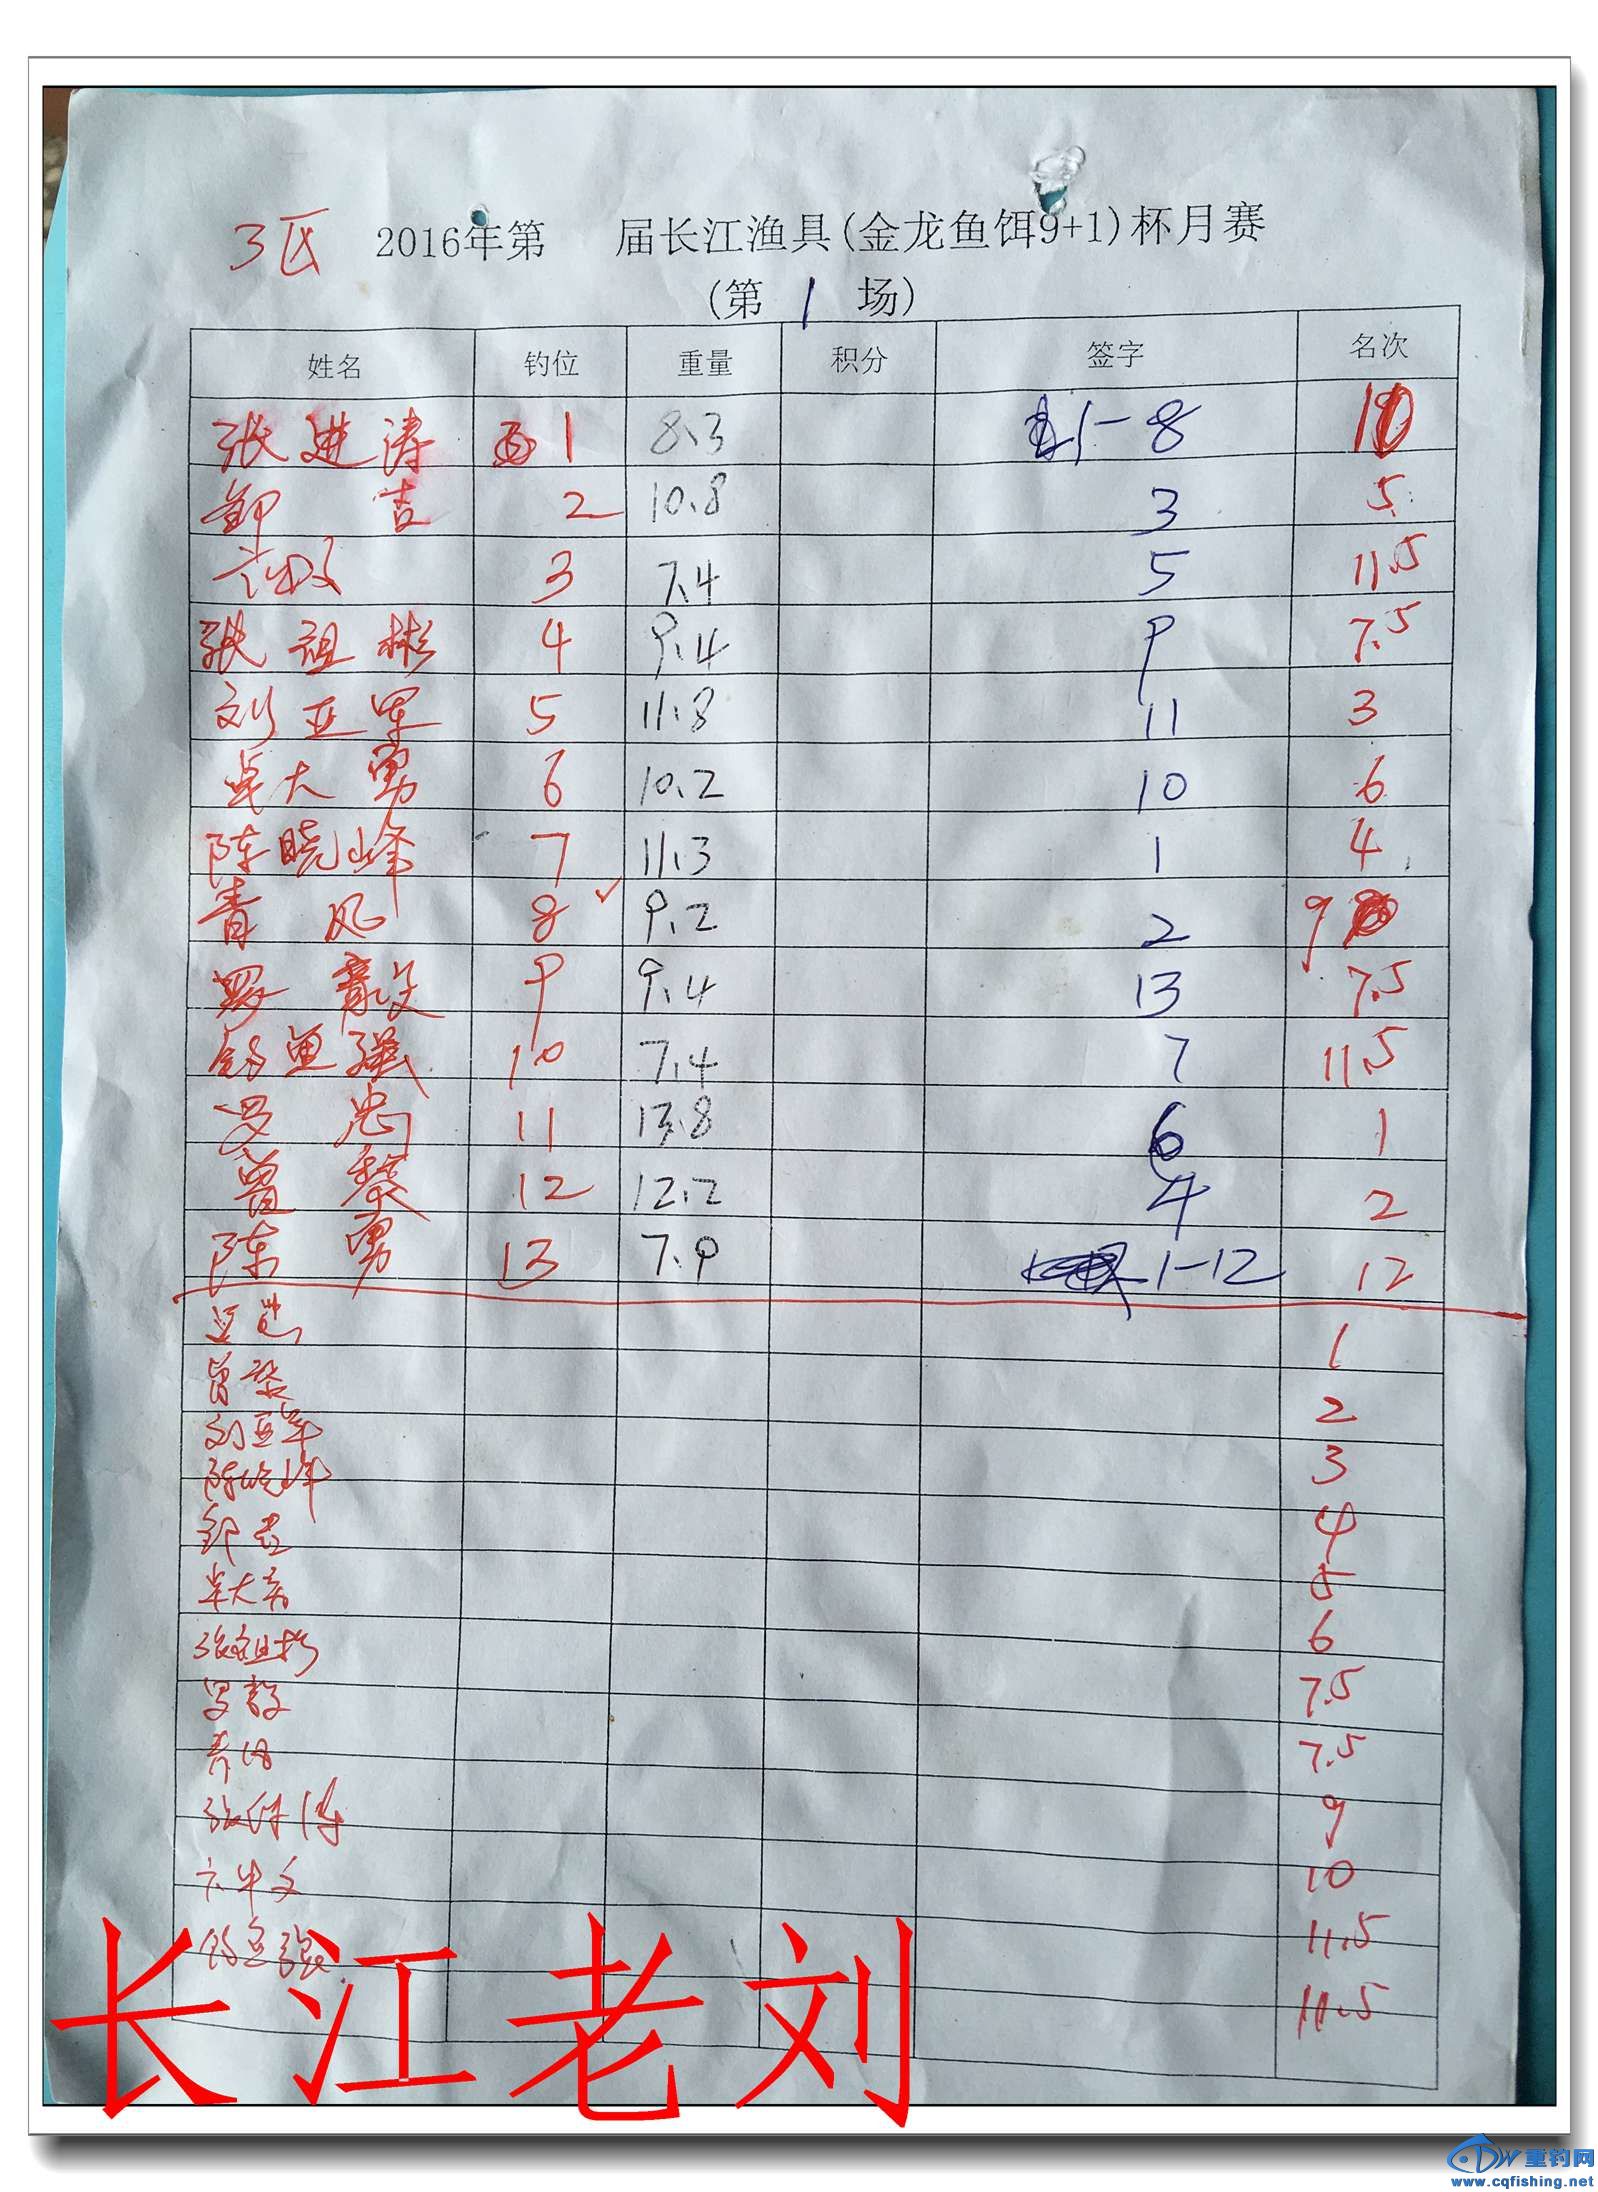 3区 2016年第 届长江渔具(金龙鱼饵9+1)杯月赛
(第 1 场)
姓名 钓位 重量 积分 签字 名次
张进涛 1 8.3 1-8 10
邹吉 2 10.8 3 5
3 7.4 5 11.5
张祖彬 4 9.4 9 7.5
刘亚军 5 11.8 11 3
卓大勇 6 10.2 10 6
陈晓峰 7 11.3 1 4
青风 8 9.2 2 9
9 9.4 13 7.5
钓鱼强 10 7.4 7 11.5
罗忠 11 13.8 6 1
曾黎 12 12.2 4 2
陈勇 13 7.9 1-12 12
1
2
刘亚军 3
陈晓峰 4
邹吉 5
卓大勇 6
张祖彬 7.5
7.5
青风 9
10
11.5
11.5
长江老刘
重钓网
www.cqfishing.net